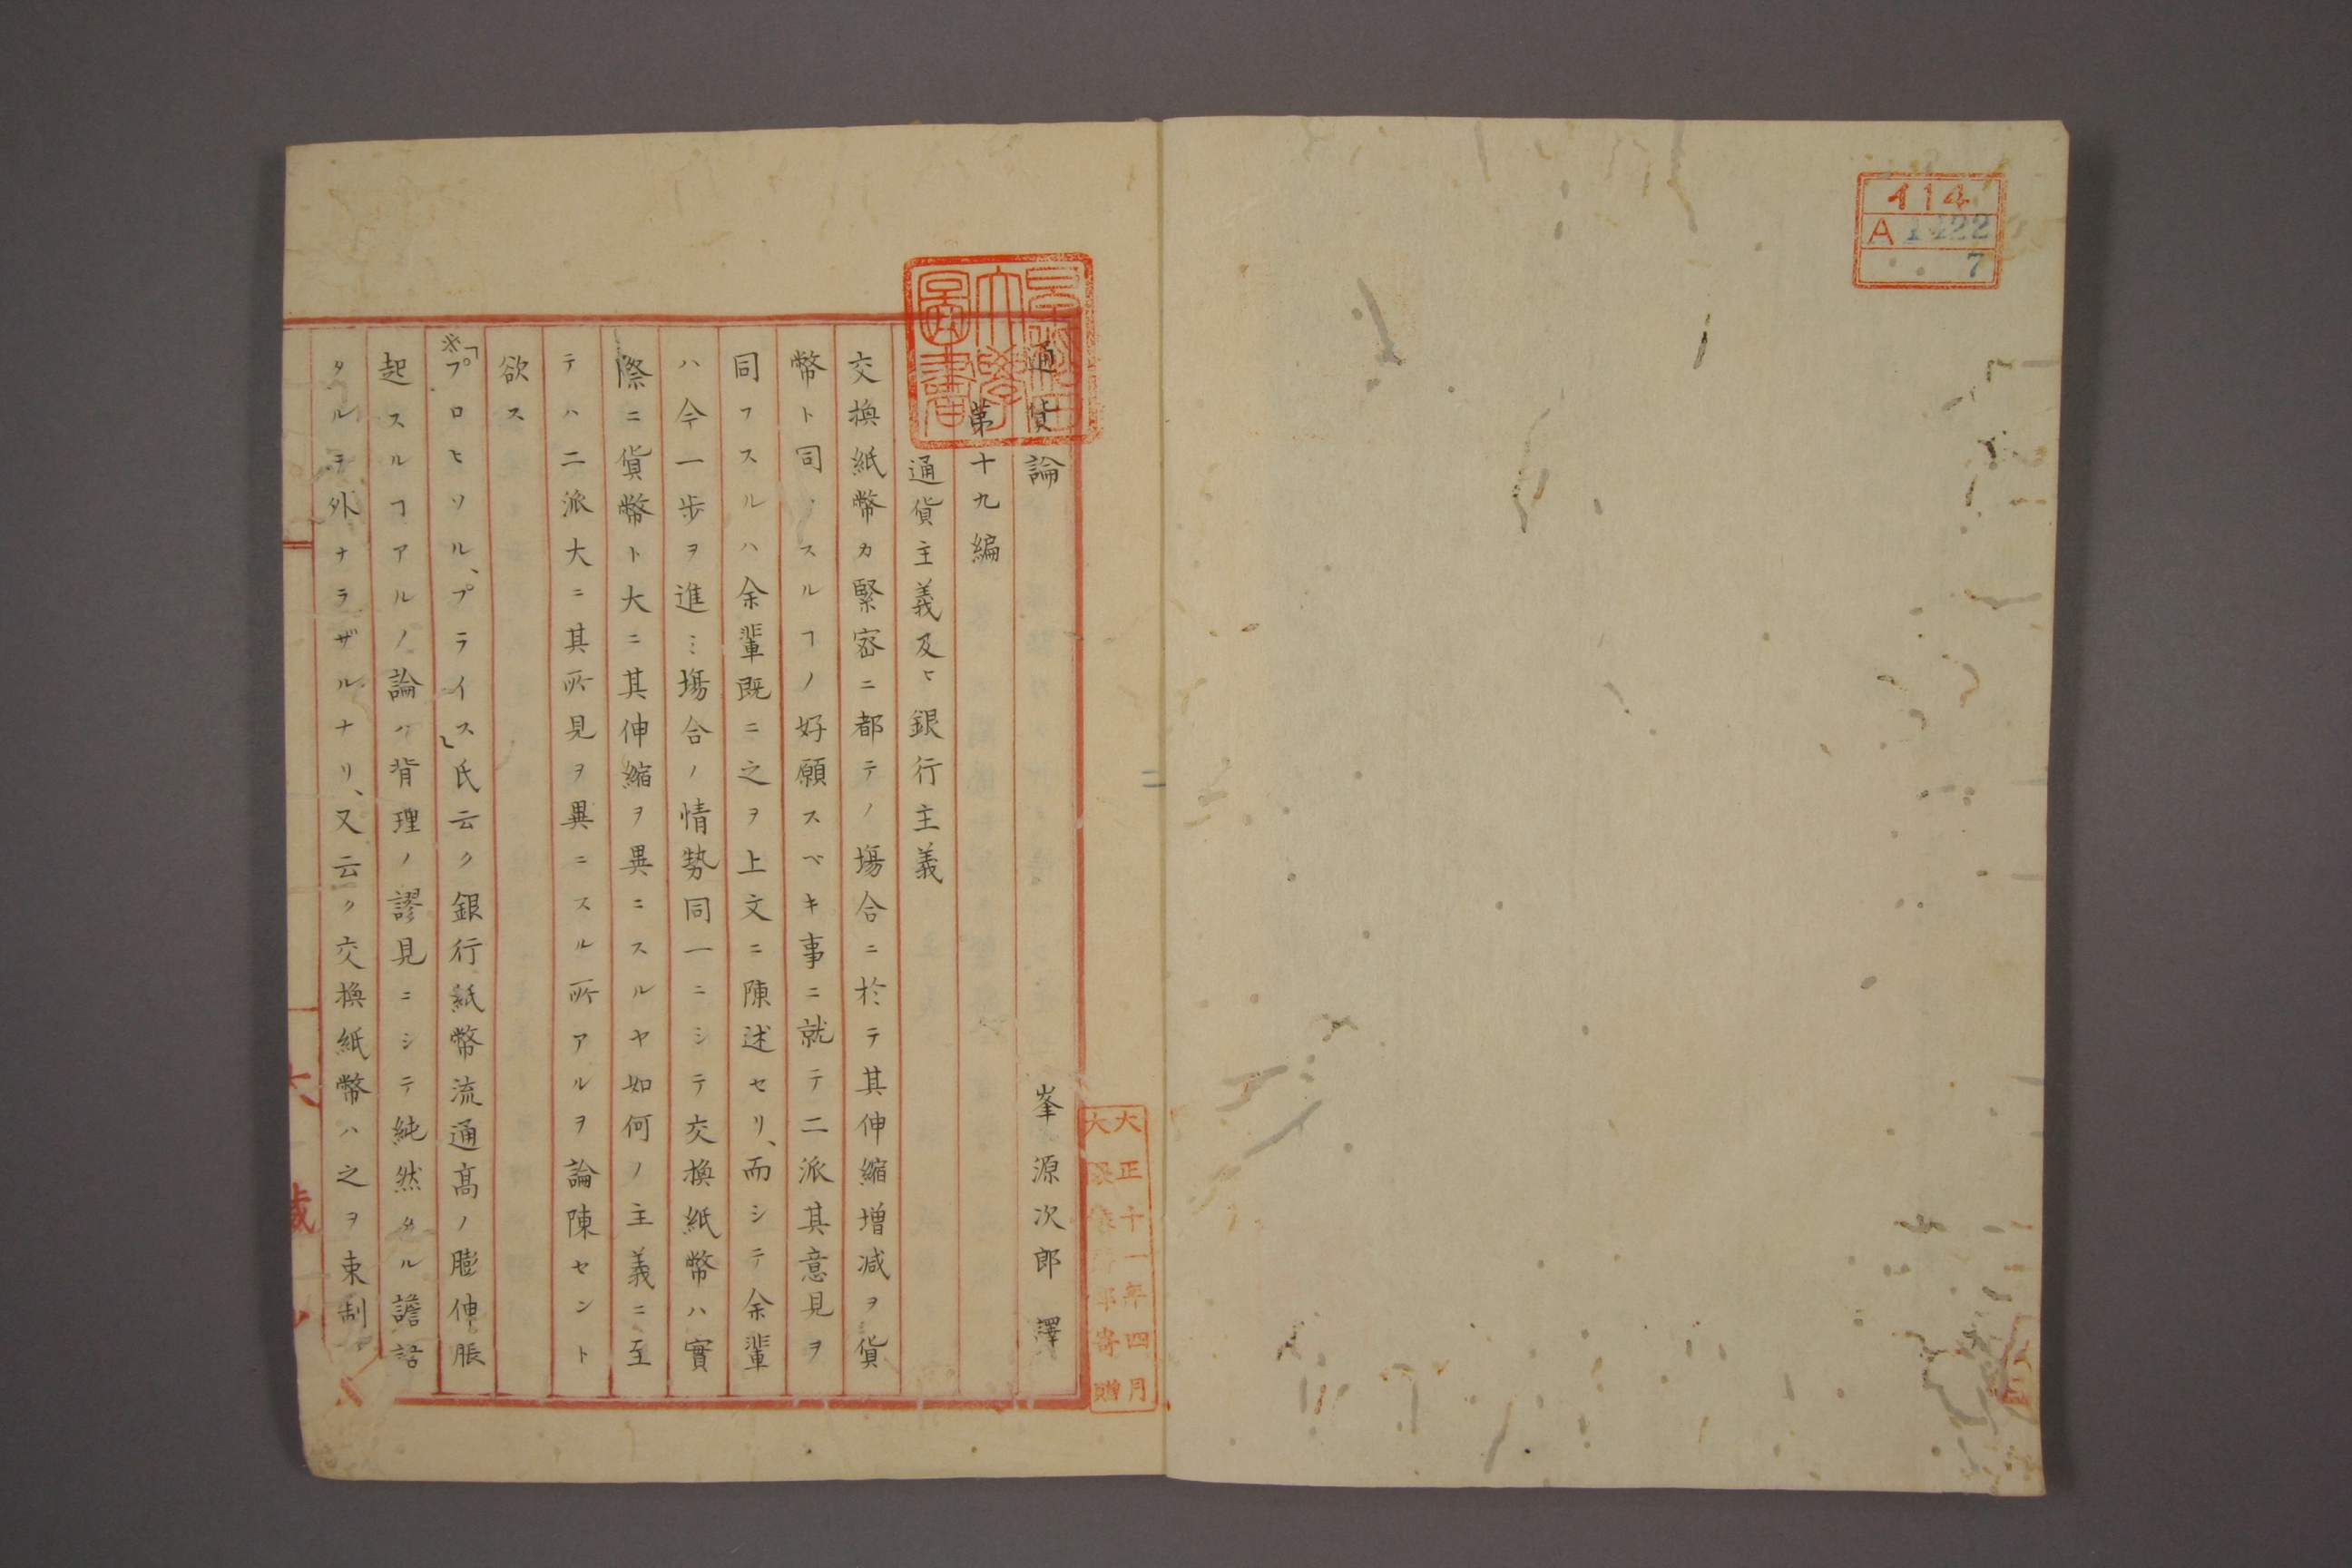 414
A 1422
7
早稲田
大學
圖書
大正十一年四月
大隈侯爵家寄贈
通貨論 峯源次郎 譯
第十九編
通貨主義及ヒ銀行主義
交換紙幣カ緊密ニ都テノ塲合ニ於テ其伸縮增减ヲ貨
幣ト同ノスルヿノ好願スベキ事ニ就テ二派其意見ヲ
同フスルハ余輩既ニ之ヲ上文ニ陳述セリ、而シテ余輩
ハ今一步ヲ進ミ塲合ノ情勢同一ニシテ交換紙幣ハ實
際ニ貨幣ト大ニ其伸縮ヲ異ニスルヤ如何ノ主義ニ至
テハ二派大ニ其所見ヲ異ニスル所アルヲ論陳セント
欲ス
※「プロヒソル、プライス」氏云ク銀行紙幣流通髙ノ膨伸脹
起スルヿアルノ論ハ背理ノ謬見ニシテ純然タル譫語
タルヲ外ナラザルナリ、又云ク交換紙幣ハ之ヲ束制